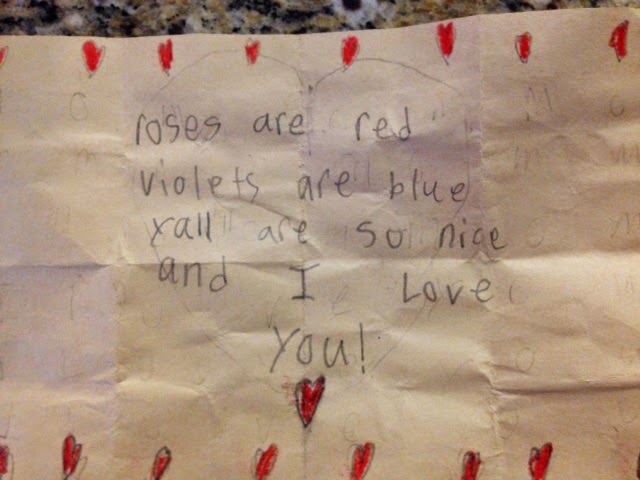 roses are red
violets are blue
yall are so nice
and I Love
You!